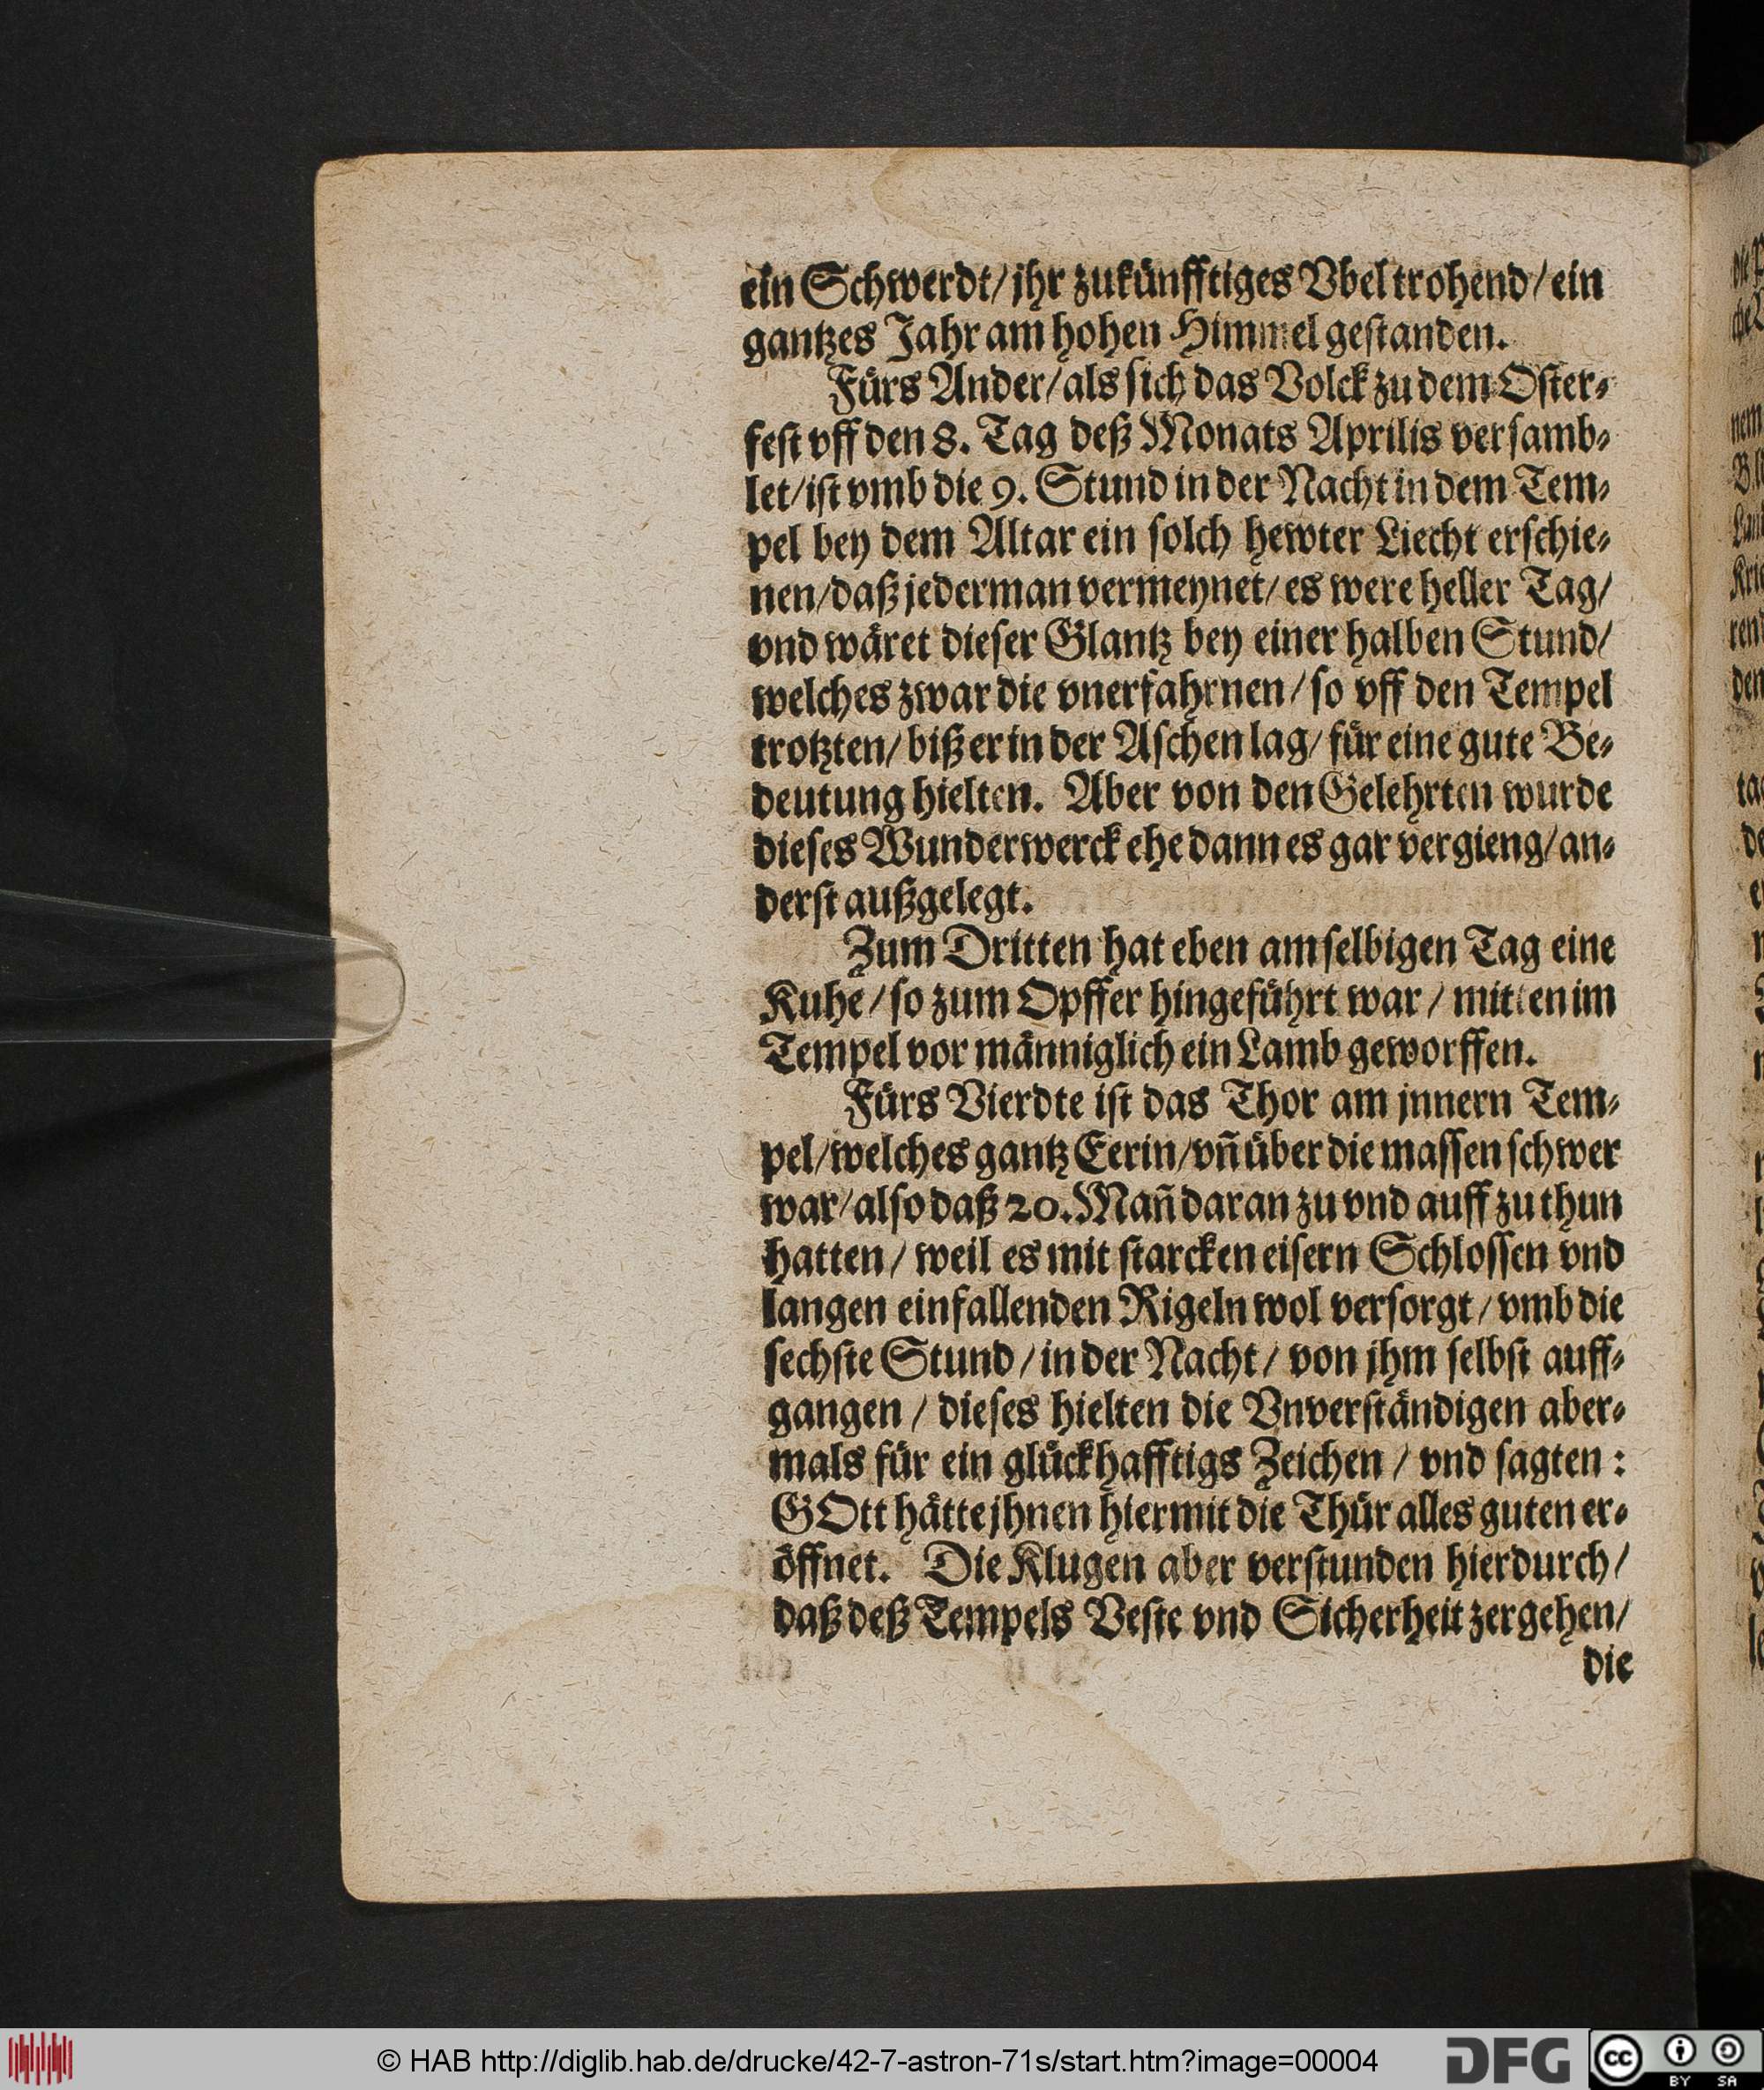 ein Schwerdt/ jhr zukünfftiges Vbel trohend/ ein
gantzes Jahr am hohen Himmel gestanden.
Fürs Ander/ als sich das Volck zu dem Oster-
fest vff den 8. Tag deß Monats Aprilis versamb-
let/ ist vmb die 9. Stund in der Nacht in dem Tem-
pel bey dem Altar ein solch hewter Liecht erschie-
nen/ daß jederman vermeynet/ es were heller Tag/
vnd wäret dieser Glantz bey einer halben Stund/
welches zwar die vnerfahrnen/ so vff den Tempel
trotzten/ biß er in der Aschen lag/ für eine gute Be-
deutung hielten. Aber von den Gelehrten wurde
dieses Wunderwerck ehe dann es gar vergieng/ an-
derst außgelegt.
Zum Dritten hat eben am selbigen Tag eine
Kuhe/ so zum Opffer hingeführt war/ mitten im
Tempel vor männiglich ein Lamb geworffen.
Fürs Vierdte ist das Thor am jnnern Tem-
pel/ welches gantz Eerin/ vñ über die massen schwer
war/ also daß 20. Mañ daran zu vnd auff zu thun
hatten/ weil es mit starcken eisern Schlossen vnd
langen einfallenden Rigeln wol versorgt/ vmb die
sechste Stund/ in der Nacht/ von jhm selbst auff-
gangen/ dieses hielten die Vnverständigen aber-
mals für ein glückhafftigs Zeichen/ vnd sagten:
GOtt hätte jhnen hiermit die Thür alles guten er-
öffnet. Die Klugen aber verstunden hierdurch/
daß deß Tempels Veste vnd Sicherheit zergehen/
die
© HAB http://diglib.hab.de/drucke/42-7-astron-71s/start.htm?image=00004
DFG
cc BY SA